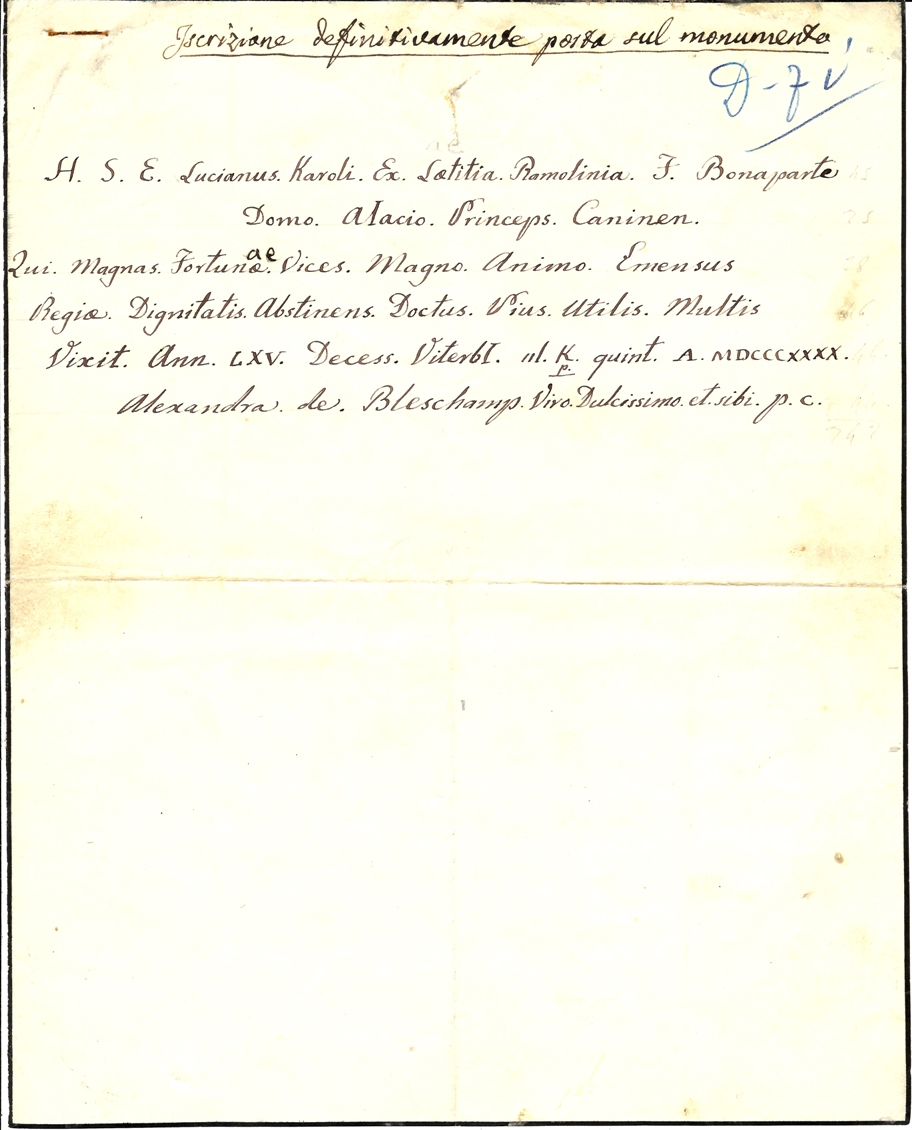 Iscrizione definitivamente posta sul monumento
D-7 v
H. S. E. Lucianus. Karoli. Ex. Lætitia. Ramolinia. F. Bonaparte
Domo. AIacio. Princeps. Caninen.
ae
Qui. Magnas. Fortunæ. Vices. Magno. Animo. Emensus
Regiæ. Dignitatis. Abstinens. Doctus. Pius. Utilis. Multis
Vixit. Ann. LXV. Decess. ViterbI. III. K. quint. A. MDCCCXXXX.
p.
Alexandra. de. Bleschamp. Viro. Dulcissimo. et. sibi. p. c.